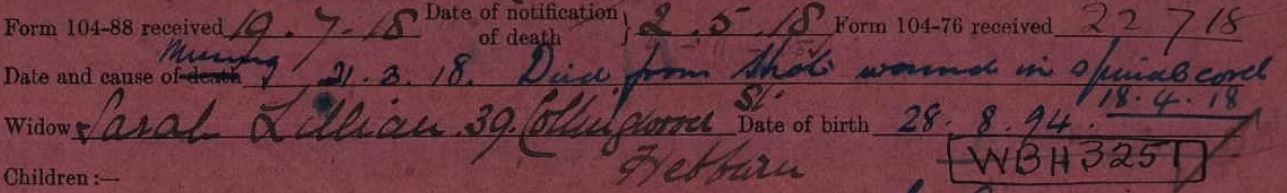 Form 104-88 received 19.7.18 Date of notification of death } 2.5.18 Form 104-76 received 22 7 18
Missing
Date and cause of death 21.3.18. Died from shot wound in spinal cord
18.4.18
Widow Sarah Lillian. 39. Collingwood St. Date of birth 28.8.94.
Hebburn
WBH 3251
Children :—